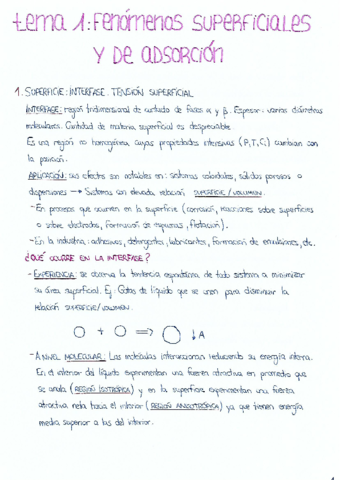 tema 1: Fenómenos superficiales
y de adsorción
1. SUPERFICIE: INTERFASE. TENSIÓN SUPERFICIAL
INTERFASE: región tridimensional de contacto de fases α y β. Espesor: varios diámetros
moleculares. Cantidad de materia superficial es despreciable
Es una región no homogénea, cuyas propiedades intensivas (P,T,C) cambian con
la posición.
APLICACIÓN: sus efectos son notables en: sistemas coloidales, sólidos porosos o
dispersiones → Sistemas con elevada relación SUPERFICIE/VOLUMEN.
- En procesos que ocurren en la superficie (corrosión, reacciones sobre superficies
o sobre electrodos, formación de espumas, flotación).
- En la industria: adhesivos, detergentes, lubricantes, formación de emulsiones, etc.
¿QUÉ OCURRE EN LA INTERFASE?
- EXPERIENCIA: se observa la tendencia espontánea de todo sistema a minimizar
su área superficial. Ej: Gotas de líquido que se unen para disminuir la
relación SUPERFICIE/VOLUMEN.
O + O => O ↓A
- A NIVEL MOLECULAR: Las moléculas interaccionan reduciendo su energía interna.
En el interior del líquido experimentan una fuerza atractiva en promedio que
se anula (REGIÓN ISOTRÓPICA) y en la superficie experimentan una fuerza
atractiva neta hacia el interior (REGIÓN ANISOTRÓPICA) ya que tienen energía
media superior a las del interior.